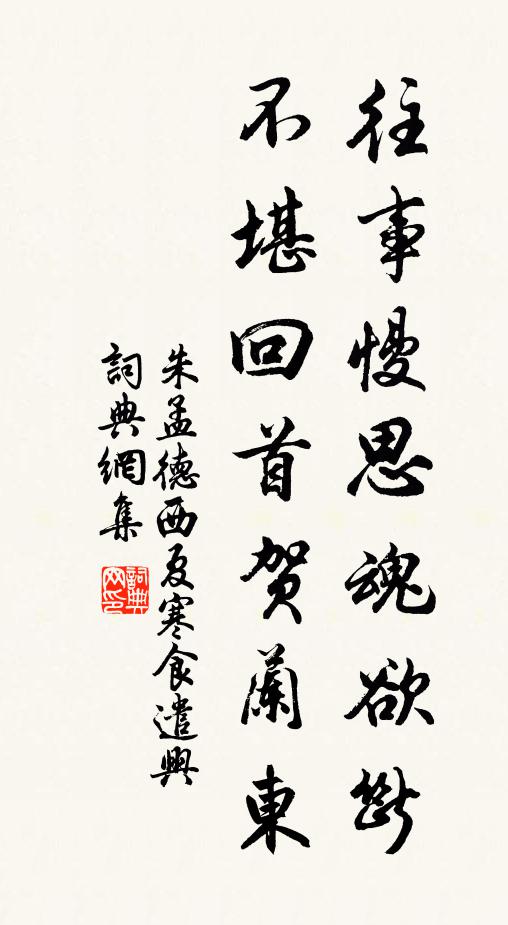 往事慢思魂欲斷
不堪回首賀蘭東
朱孟德西夏寒食遣興
詞典網集
詞典網印